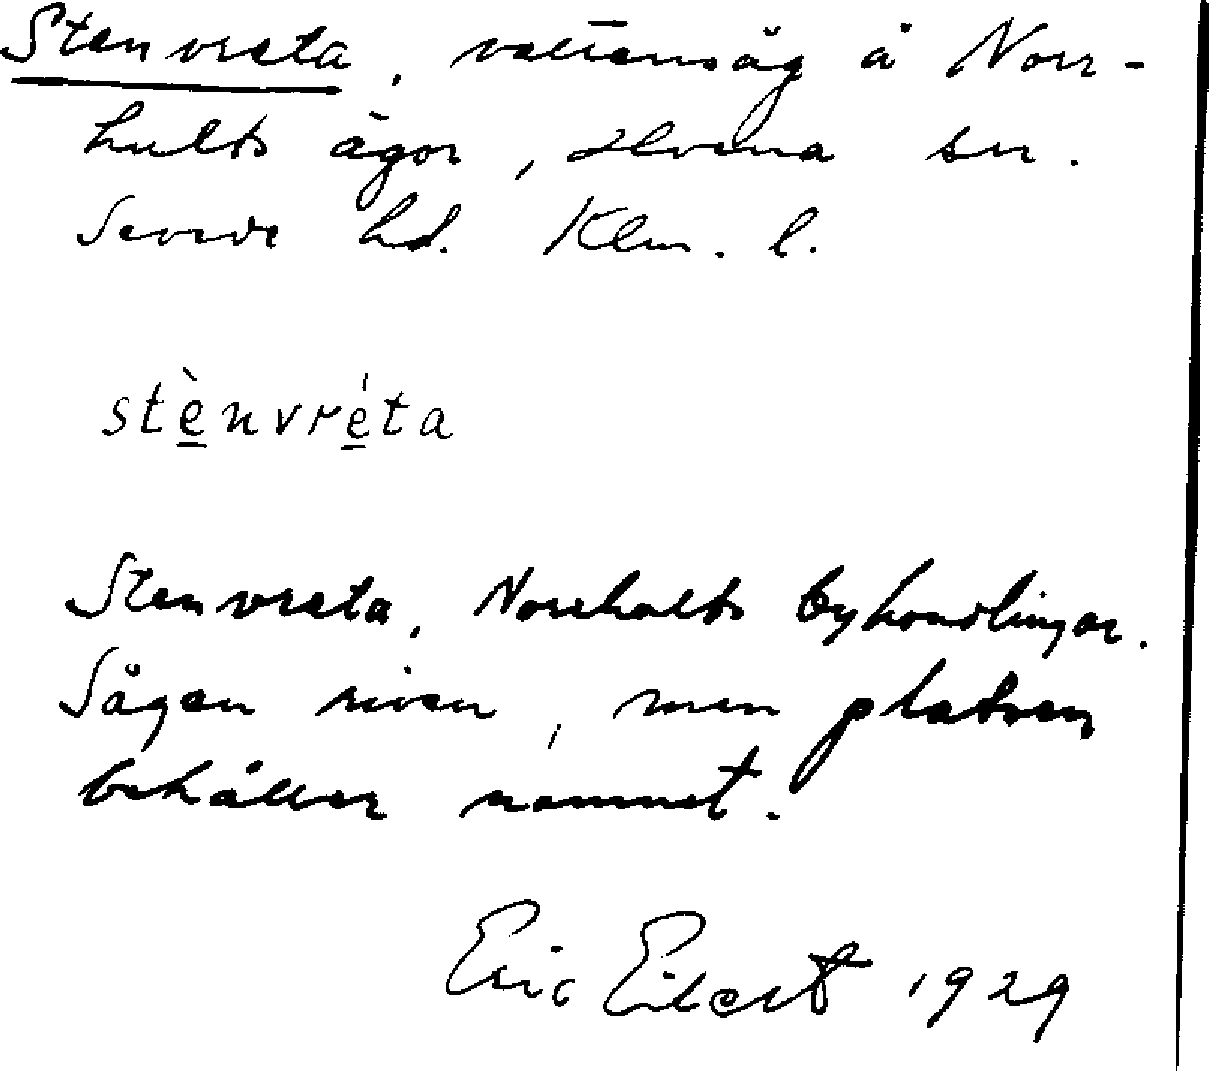 Stenvreta, vattensåg å Norr-
hults ägor, Hvena sn.
Sevede hd. Klm. l.
stènvréta
Stenvreta, Norrhults byhandlingar.
Sågen riven, men platsen
behåller namnet.
Eric Eilert 1929